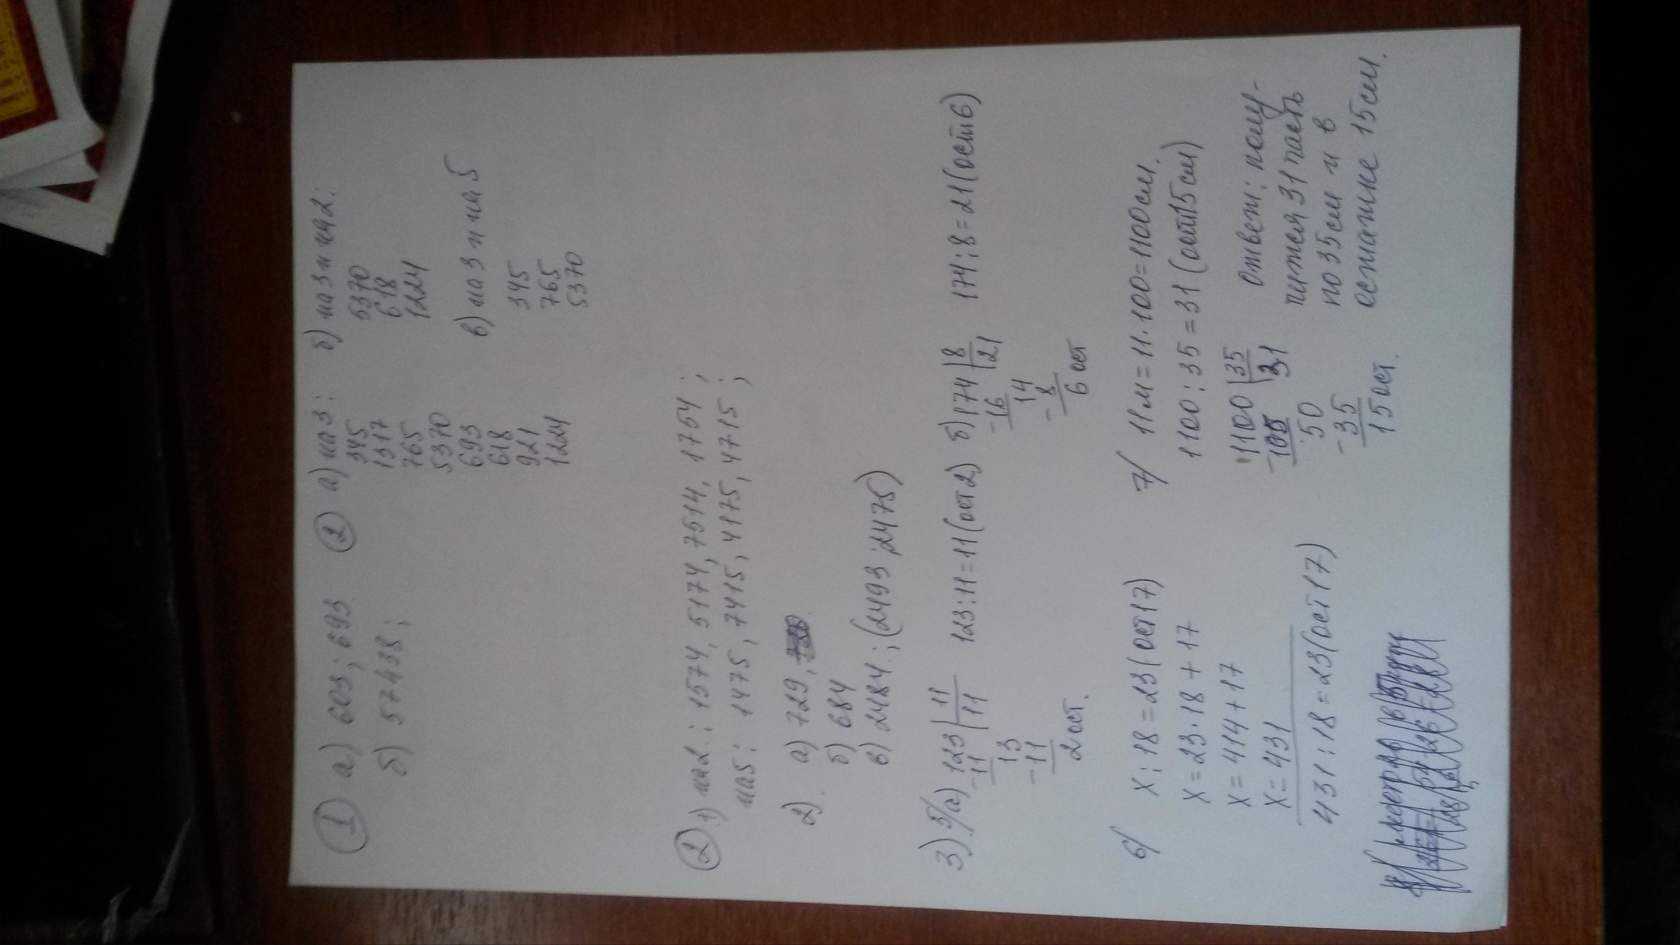 1 а) 603; 693
б) 57438;
2 а) на 3:
345
1317
765
5370
693
618
921
1224
б) на 3 и на 2:
5370
618
1224
в) на 3 и на 5
345
765
5370
2 1) на 2: 1574, 5174, 7514, 1754;
на 5: 1475, 7415, 4175, 4715;
2). а) 729,
б) 684
в) 2484.; (2493; 2475)
3) 5/а) 123 | 11
-11 | 11
13
-11
2 ост.
123:11=11(ост 2)
б) 174 | 8
-16 | 21
14
-8
6 ост
174:8=21(ост 6)
6/ х:18=23(ост 17)
х=23·18+17
х=414+17
х=431
431:18=23(ост 17)
7/ 11м=11·100=1100см.
1100:35=31(ост 15 см)
1100 | 35
-105 | 31
50
-35
15 ост.
ответ: полу-
чится 31 часть
по 35см и в
остатке 15см.